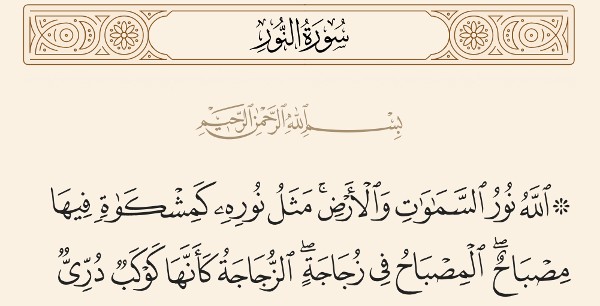 سُورَةُ النُّورِ
بِسْمِ ٱللَّهِ ٱلرَّحْمَٰنِ ٱلرَّحِيمِ
۞ ٱللَّهُ نُورُ ٱلسَّمَٰوَٰتِ وَٱلْأَرْضِۚ مَثَلُ نُورِهِۦ كَمِشْكَوٰةٖ فِيهَا
مِصْبَاحٌۖ ٱلْمِصْبَاحُ فِي زُجَاجَةٍۖ ٱلزُّجَاجَةُ كَأَنَّهَا كَوْكَبٞ دُرِّيّٞ